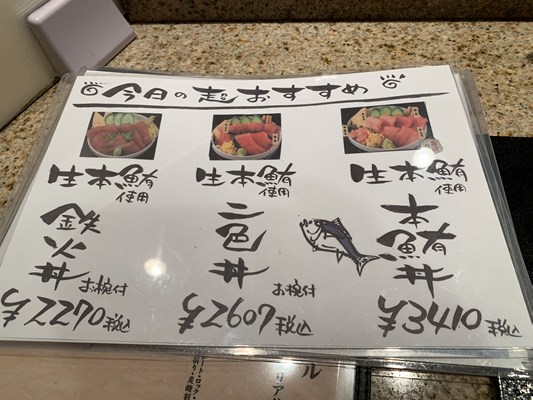 今日の超おすすめ
生本鮪
使用
鉄火丼
お椀付
¥2270税込
生本鮪
使用
二色丼
お椀付
¥2607税込
生本鮪
使用
本鮪丼
¥3410税込